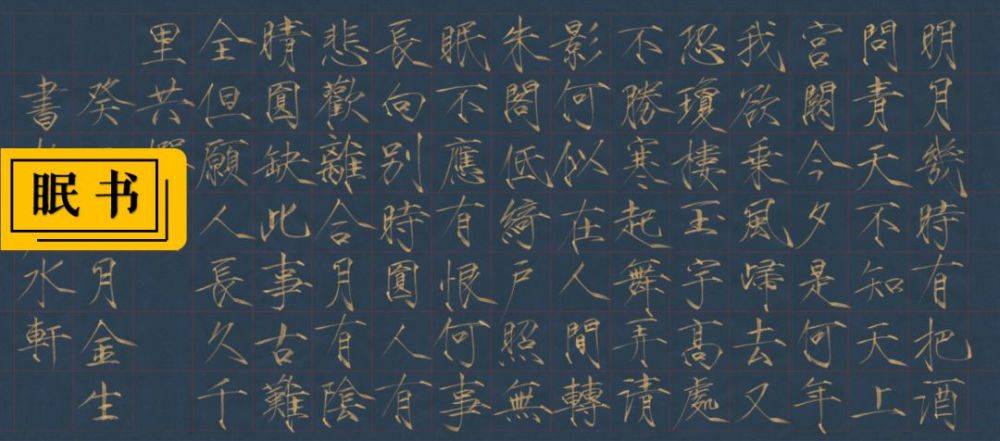 明月幾時有把酒
問青天不知天上
宮闕今夕是何年
我欲乘風歸去又
恐瓊樓玉宇高處
不勝寒起舞弄清
影何似在人間轉
朱閣低綺戶照無
眠不應有恨何事
長向別時圓人有
悲歡離合月有陰
晴圓缺此事古難
全但願人長久千
里共
癸月金生
書水軒
眠书